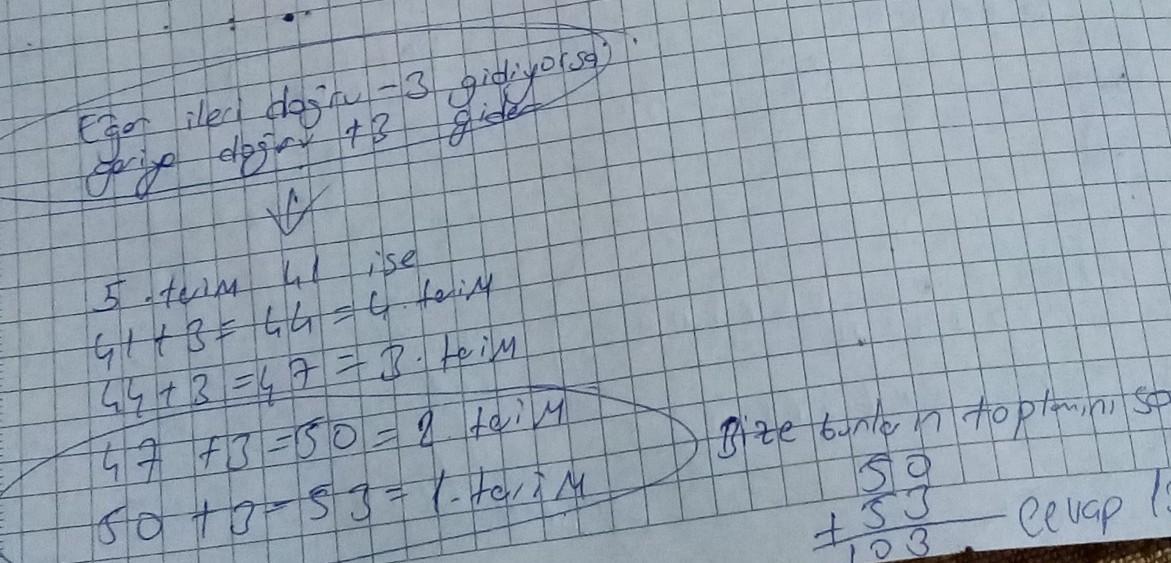 Eğer ileri doğru -3 gidiyorsa
geriye doğru +3 gider
5. terim 41 ise
41+3=44=4.terim
44+3=47=3.terim
47+3=50=2.terim
50+3=53=1.terim
Bize bunların toplamını
50
+53
103 Cevap